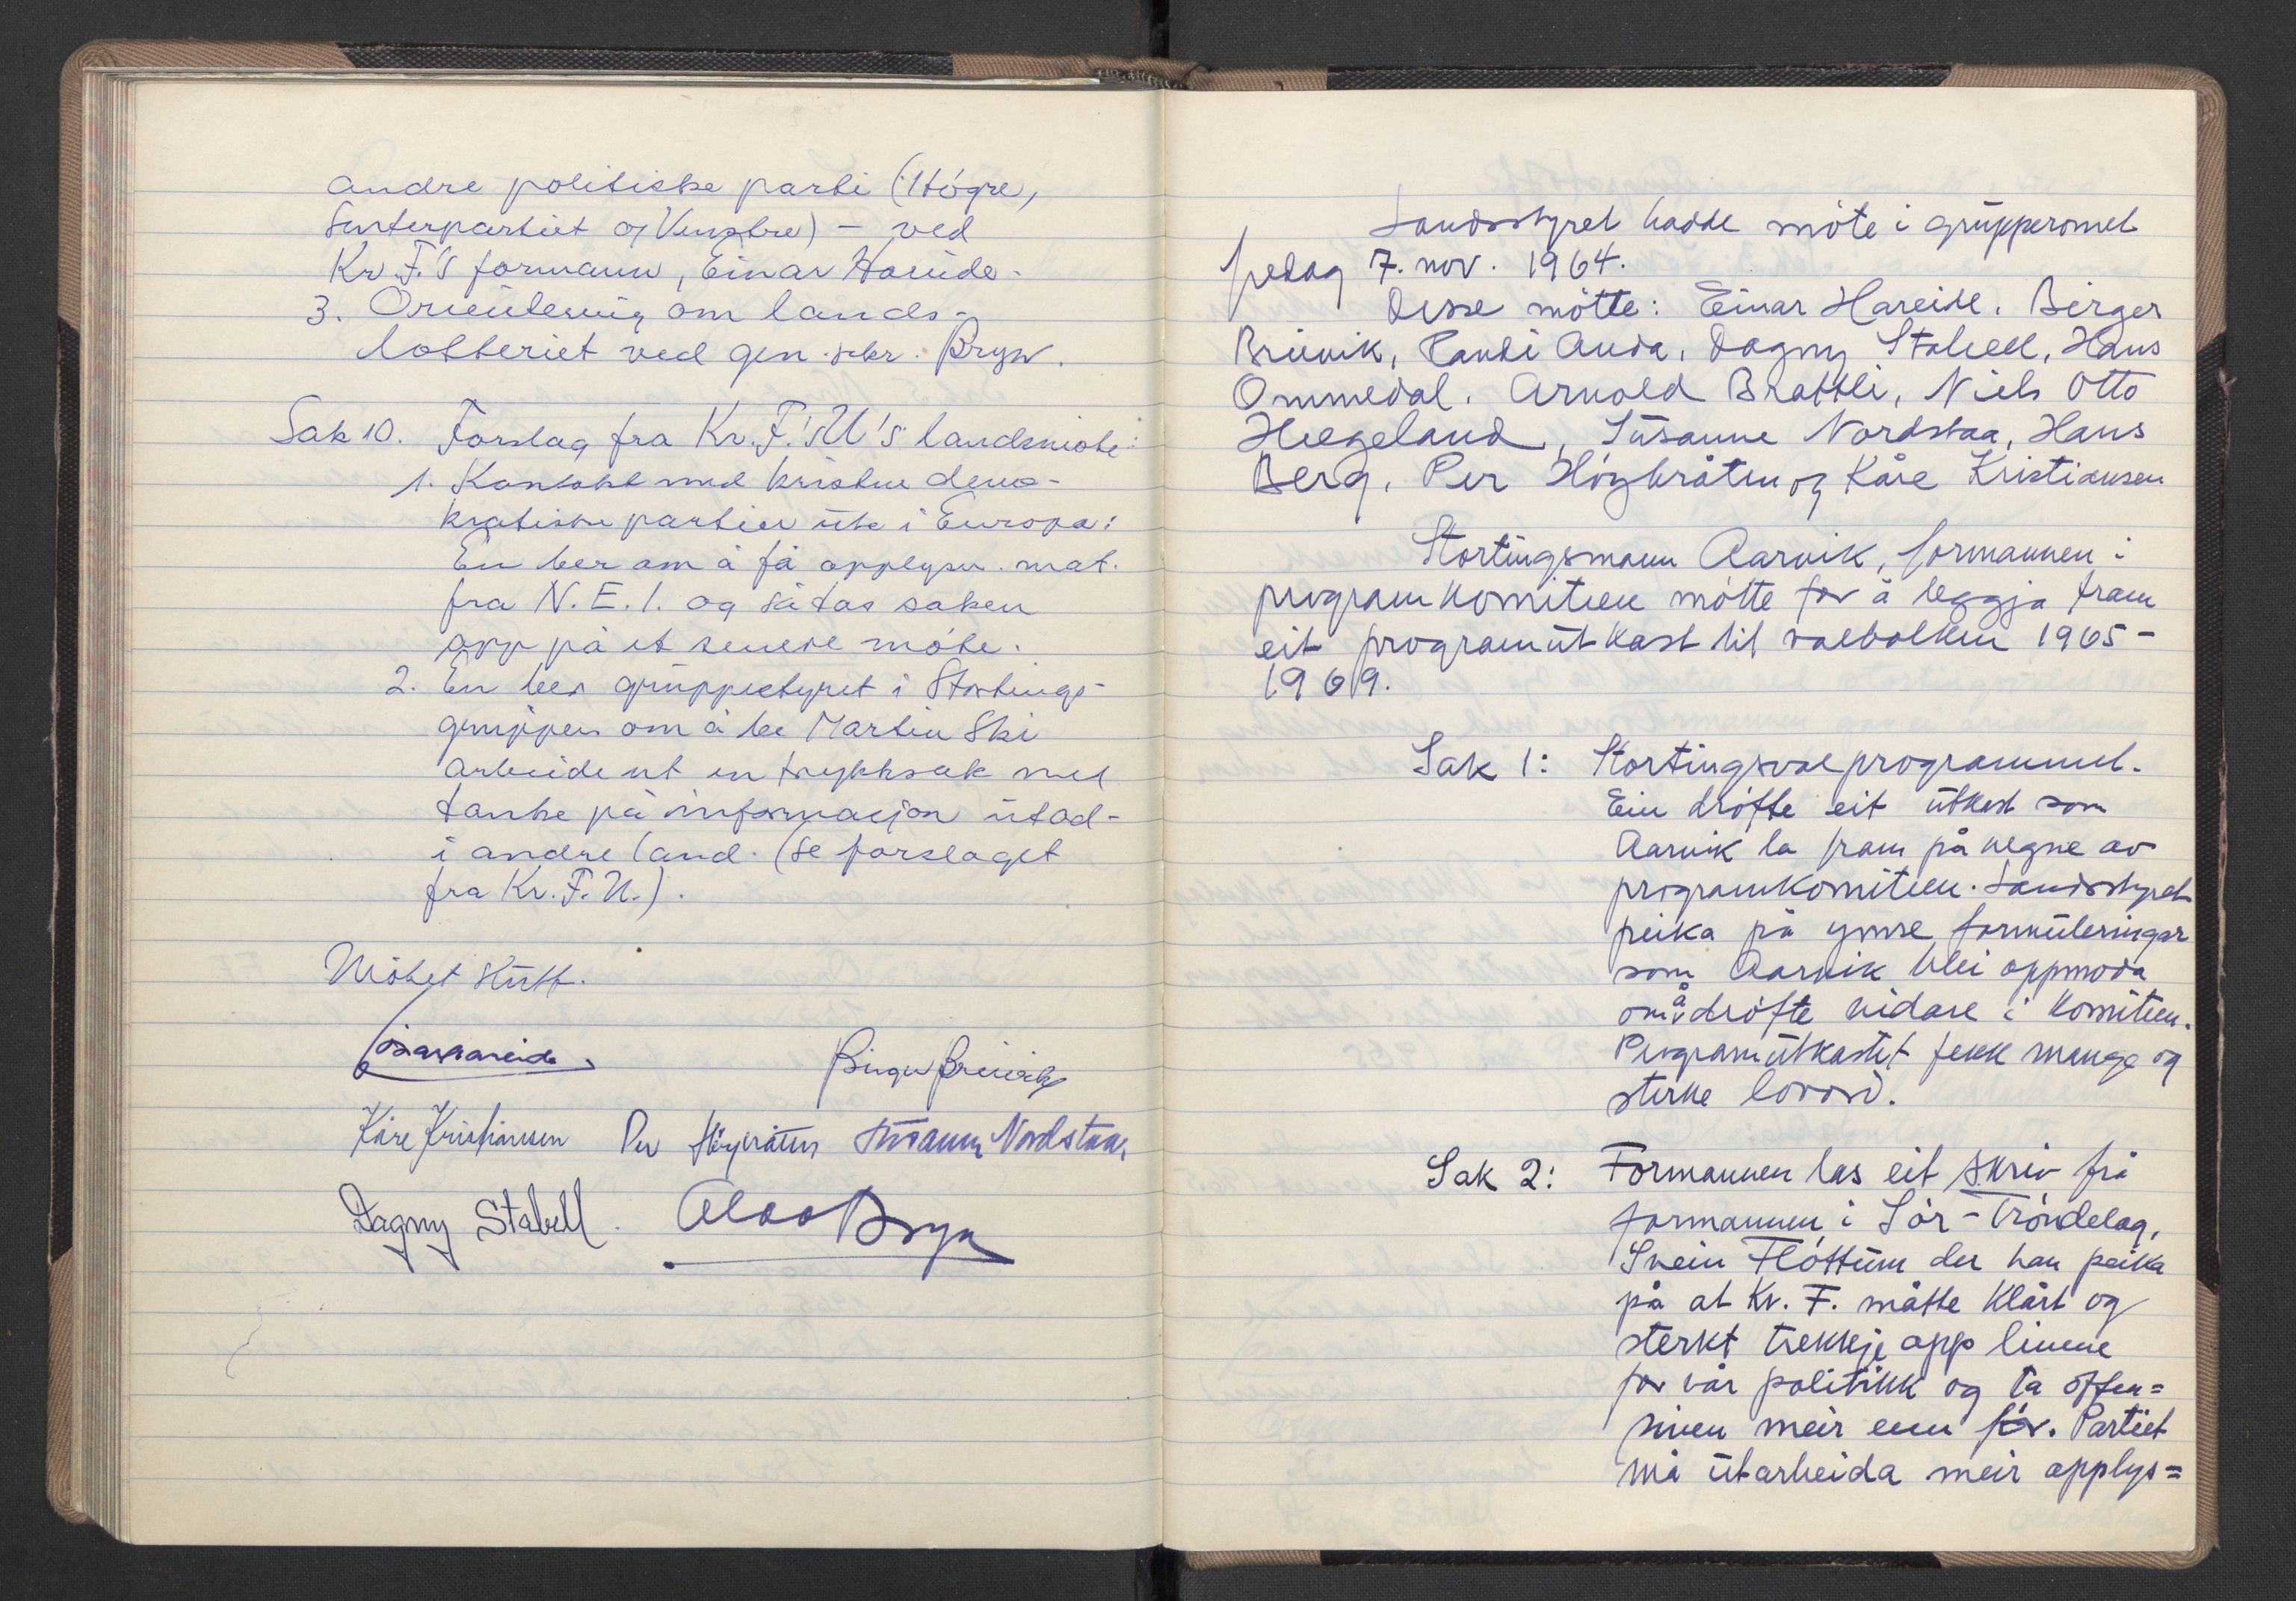 andre politiske parti (Högre,
Senterpartiet og Venstre) - ved
Kr. F.'s formann, Einar Hareide.
3. Orientering om lands-
lotteriet ved gen. sekr. Bryn.
Sak 10. Forslag fra Kr.F.'sU's landsmöte:
1. Kontakt med kristne demo-
kratiske partier ute i Europa:
En ber om å få opplysn. mat.
fra N.E.I. og så tas saken
opp på et senere möte.
2. En ber gruppestyret i Stortings-
gruppen om å be Martin Ski
arbeide ut en trykksak med
tanke på informasjon utad -
i andre land. (Se forslaget
fra Kr.F.U.).
Mötet slutt.
Einar Hareide
Birger Breivik
Kåre Kristiansen Per Höybråten Susanne Nordstaa
Dagny Stabell. Olav Bryn
Landsstyret hadde möte i grupperomet
fredag 7. nov. 1964.
Desse mötte: Einar Hareide. Birger
Breivik, Randi Anda, Dagny Stabell, Hans
Ommedal. Arnold Brattli, Niels Otto
Hægeland, Susanne Nordstaa, Hans
Berg. Per Höybråten og Kåre Kristiansen
Stortingsmann Aarvik, formannen i
programkomiteen mötte for å leggja fram
eit programutkast til valbolken 1965-
1969.
Sak 1: Stortingsvalprogrammet.
Ein dröfte eit utkast som
Aarvik la fram på vegne av
programkomiteen. Landsstyret
peika på ymse formuleringar
som Aarvik blei oppmoda
om å dröfte vidare i komiteen.
Programutkastet fekk mange og
sterke lovord.
Sak 2: Formannen las eit skriv frå
formannen i Sör-Tröndelag,
Svein Flöttum der han peika
på at Kr. F. måtte klårt og
sterkt trekkje opp linene
for vår politikk og ta offen=
siven meir enn för. Partiet
må utarbeida meir opplys=